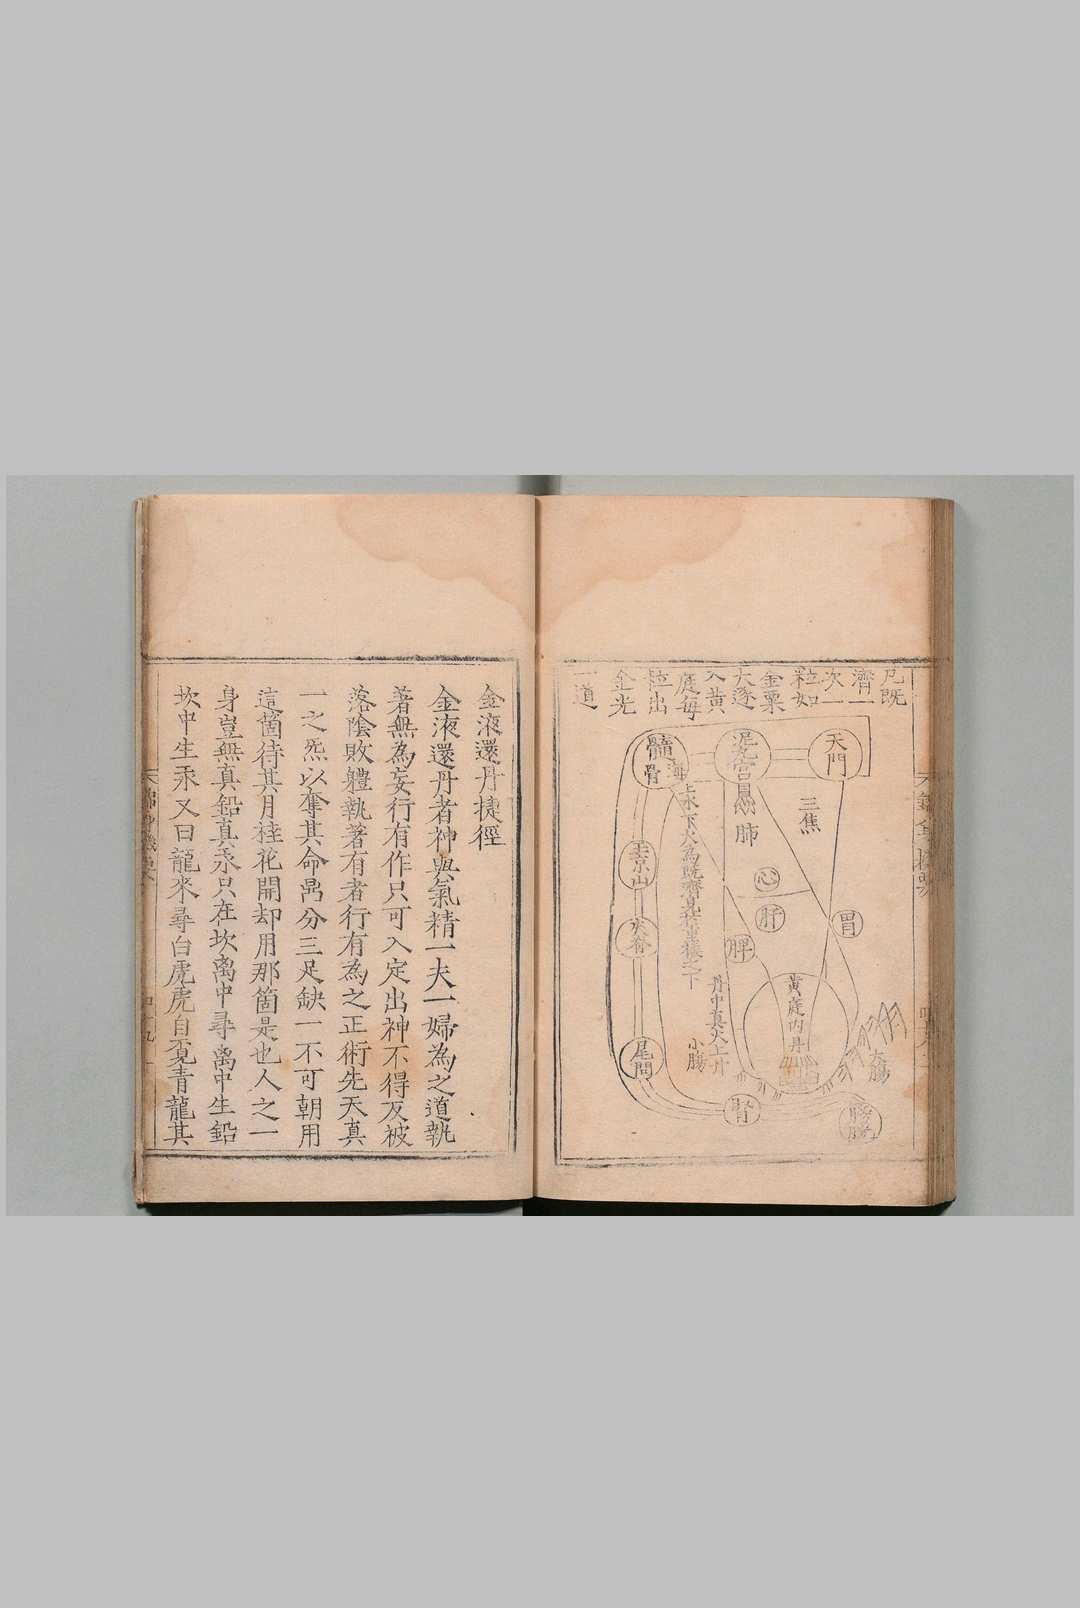 凡既
濟一
次一
粒如
金粟
大遂
入黃
庭每
粒出
金光
一道
天門
泥丸宮
髓海
骨
三焦
肺
心
肝
胃
脾
玉京山
夾脊
上水下火為既濟
丹中真火上升
小腸
黃庭內丹
大腸
尾閭
腎
膀胱
金液還丹捷徑
金液還丹者神與氣精一夫一婦為之道執
著無為妄行有作只可入定出神不得反被
落陰敗軆執著有者行有為之正術先天真
一之炁以奪其命鼎分三足缺一不可朝用
這箇待其月桂花開却用那箇是也人之一
身豈無真鉛真汞只在坎离中尋离中生鉛
坎中生汞又曰龍來尋白虎虎自覓青龍其